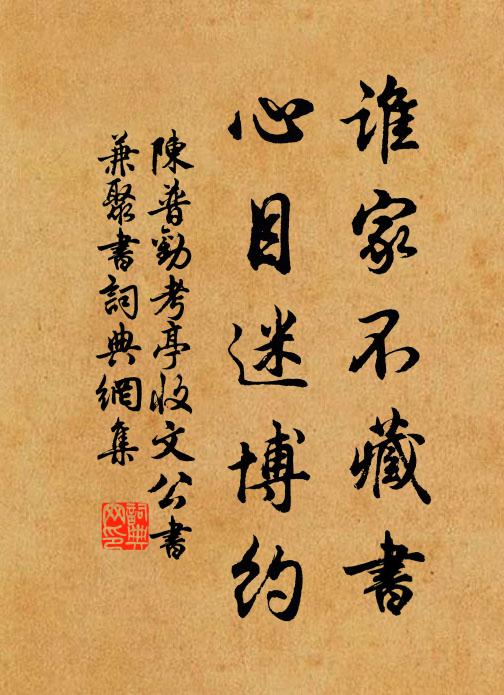 誰家不藏書
心目迷博約
陳普勸考亭收文公書
兼聚書詞典網集
詞典
网印